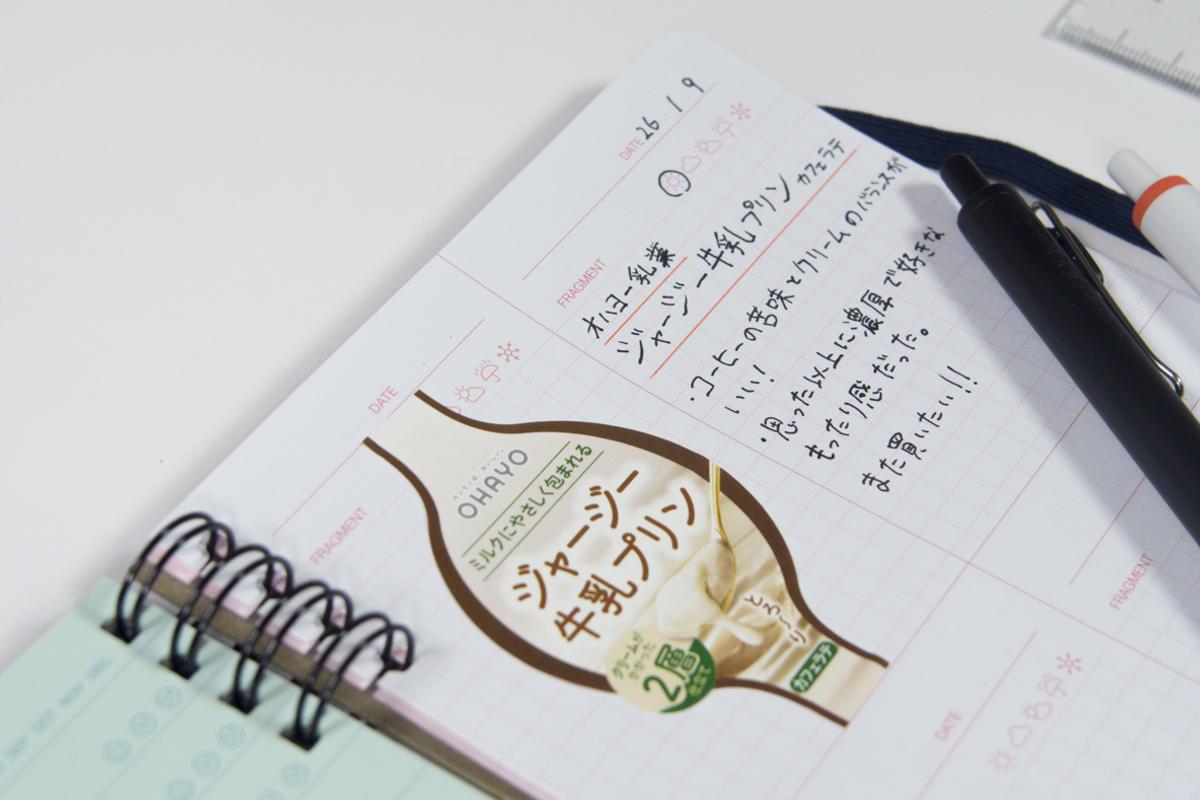 DATE 26 1 9
FRAGMENT
オハヨー乳業
ジャージー牛乳プリン カフェラテ
・コーヒーの苦味とクリームのバランスが
いい!
・思った以上に濃厚で好きな
もったり感だった。
また買いたい!!
DATE
FRAGMENT
OHAYO
ミルクにやさしく包まれる
ジャージー
牛乳プリン
とろ〜り
クリームが
かかった
2層
仕立て
カフェラテ
FRAGMENT
DATE